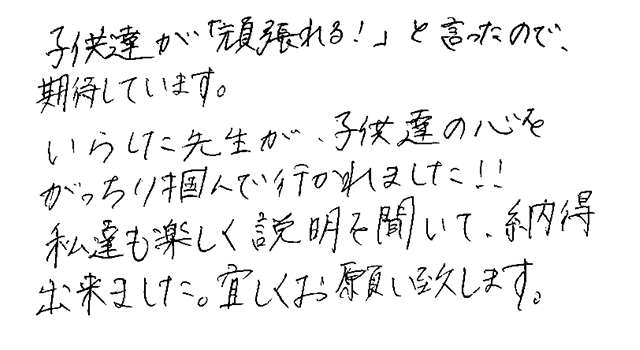 子供達が「頑張れる!」と言ったので、
期待しています。
いらした先生が、子供達の心を
がっちり掴んで行かれました!!
私達も楽しく説明を聞いて、納得
出来ました。宜しくお願い致します。